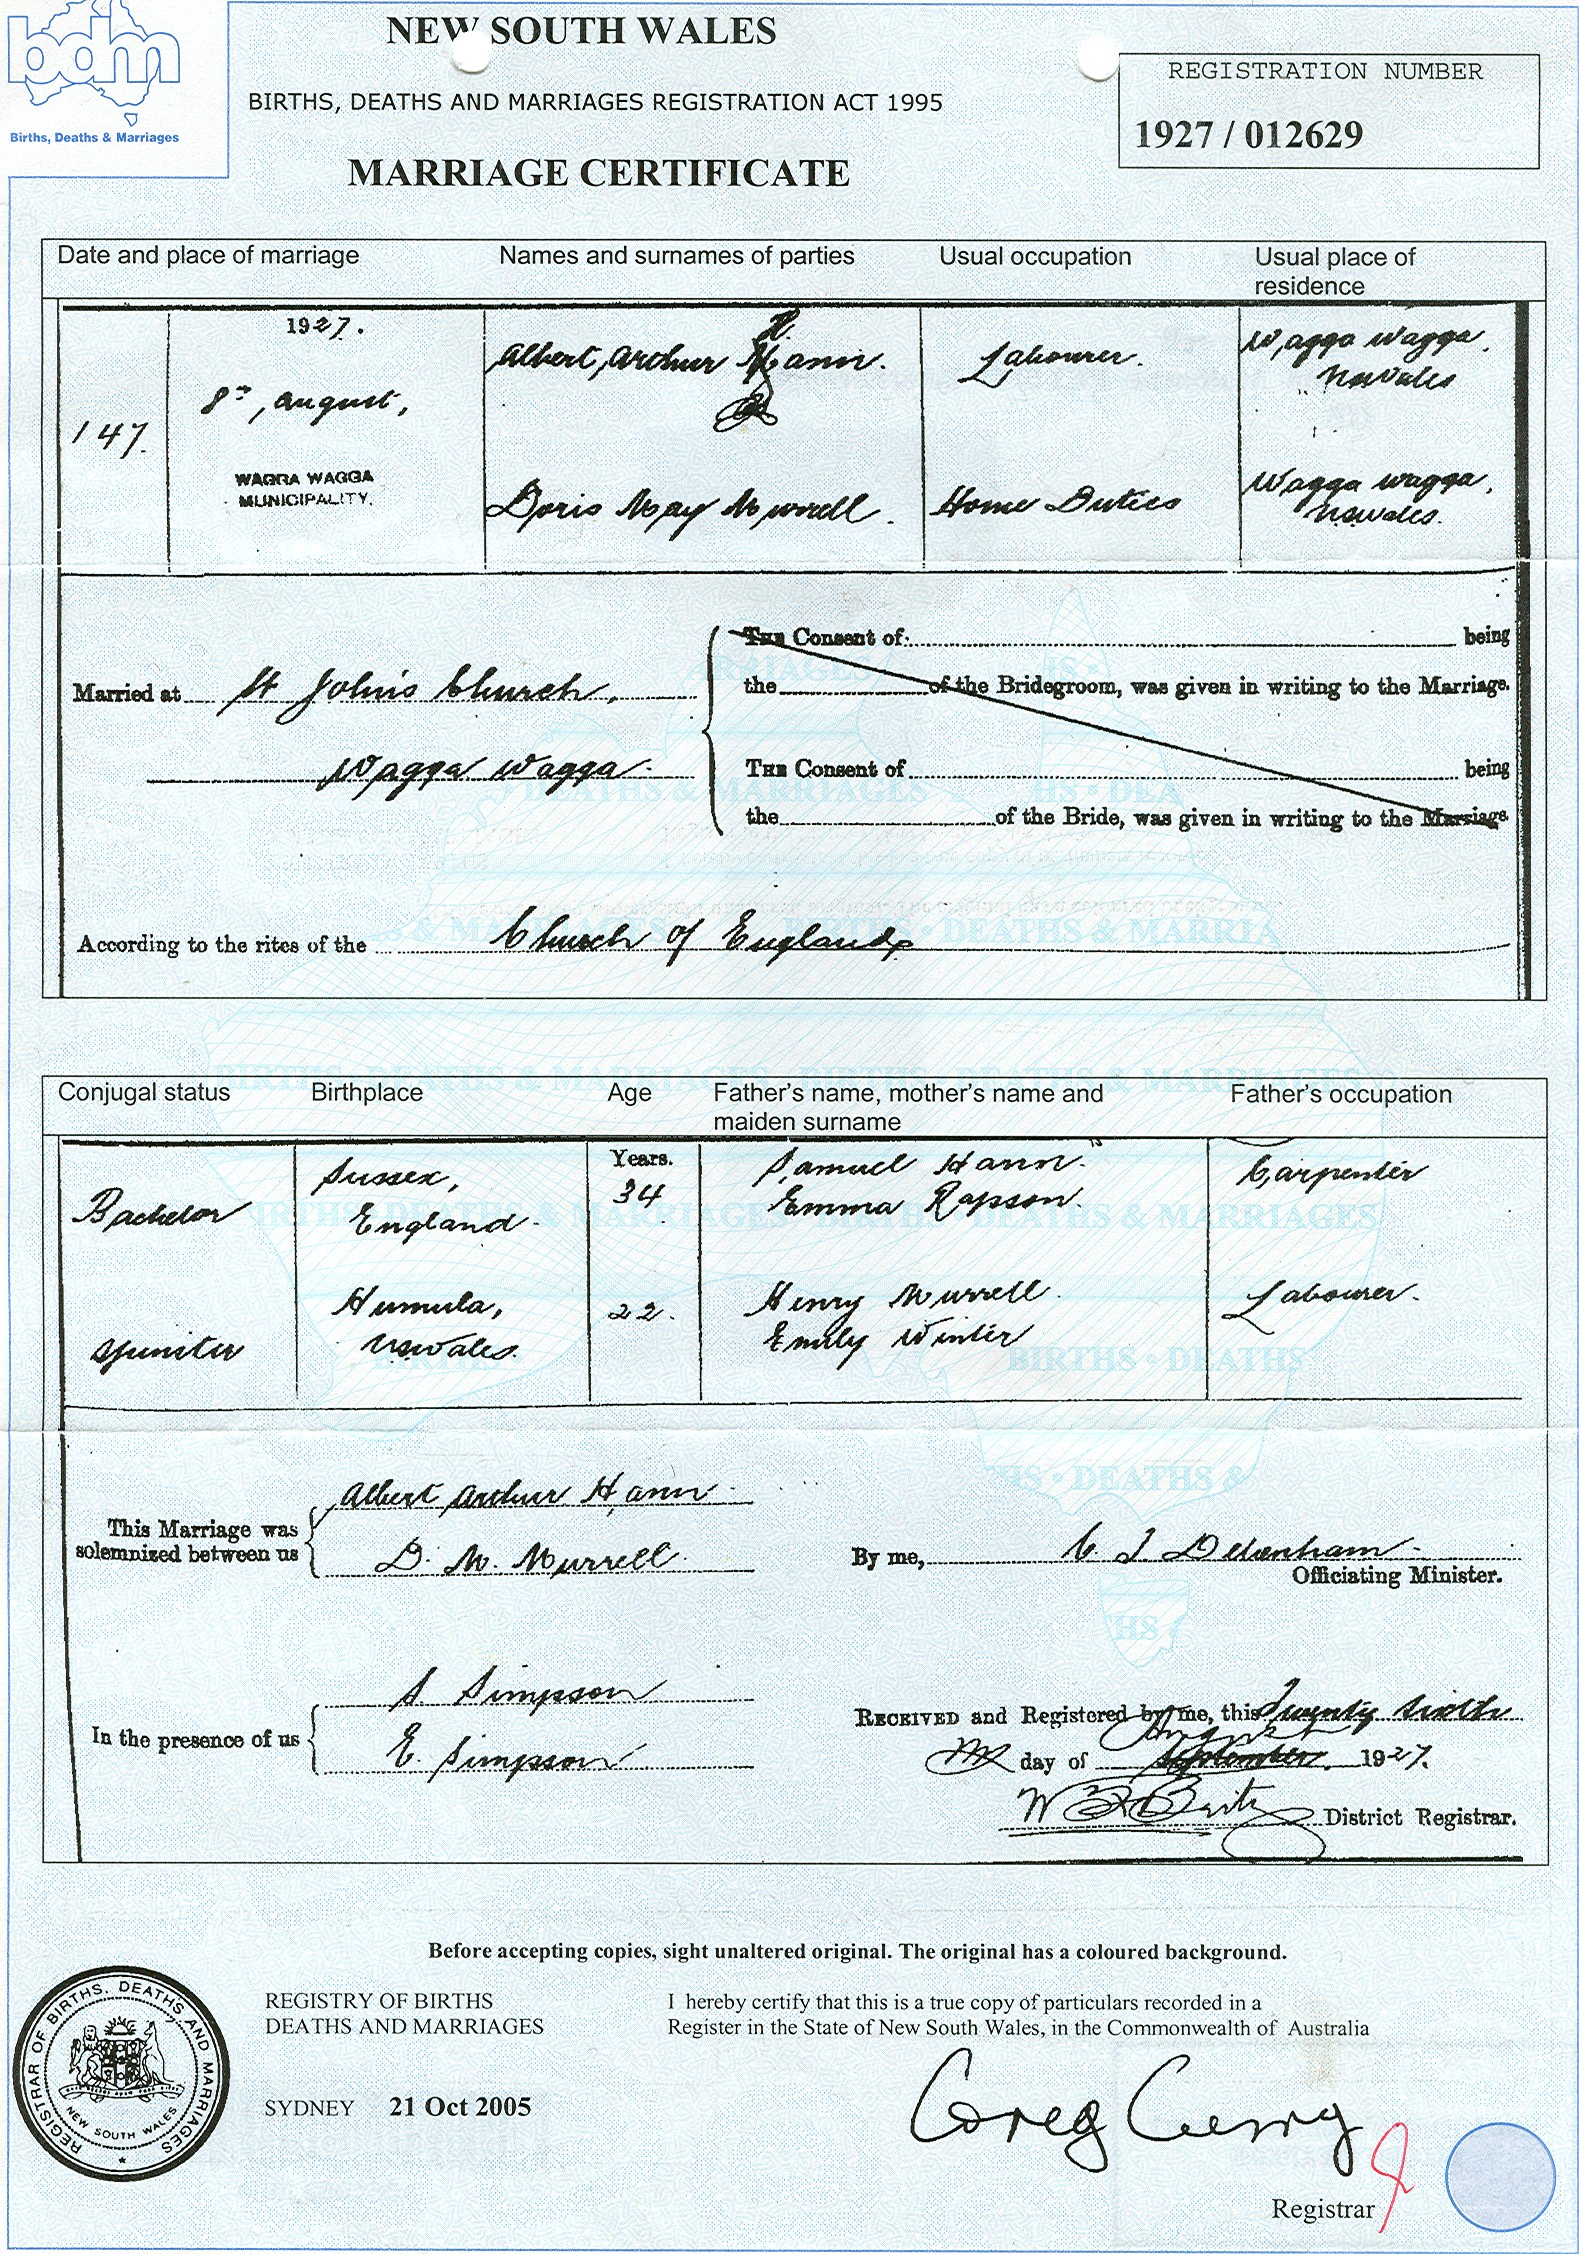 bdm
Births, Deaths & Marriages
NEW SOUTH WALES
BIRTHS, DEATHS AND MARRIAGES REGISTRATION ACT 1995
MARRIAGE CERTIFICATE
REGISTRATION NUMBER
1927 / 012629
Date and place of marriage Names and surnames of parties Usual occupation Usual place of residence
147.
1927.
8th, August,
WAGGA WAGGA
MUNICIPALITY.
H.
Albert Arthur Mann. Labourer. Wagga Wagga.
NSWales
Doris May Murrell. Home Duties Wagga Wagga,
NSWales.
Married at St John's Church,
Wagga Wagga.
THE Consent of being
the of the Bridegroom, was given in writing to the Marriage.
THE Consent of being
the of the Bride, was given in writing to the Marriage.
According to the rites of the Church of England
Conjugal status Birthplace Age Father's name, mother's name and maiden surname Father's occupation
Years.
Bachelor Sussex, England. 34 Samuel Hann. Carpenter
Emma Rapson.
Spinster Humula, NSWales. 22. Henry Murrell. Labourer.
Emily Winter
This Marriage was solemnized between us
Albert Arthur Hann.
D. M. Murrell.
By me, Officiating Minister.
In the presence of us
S Simpson
E. Simpson
RECEIVED and Registered by me, this Twenty Sixth
August
day of September 1927.
District Registrar.
Before accepting copies, sight unaltered original. The original has a coloured background.
REGISTRAR OF BIRTHS, DEATHS AND MARRIAGES
NEW SOUTH WALES
REGISTRY OF BIRTHS
DEATHS AND MARRIAGES
SYDNEY 21 Oct 2005
I hereby certify that this is a true copy of particulars recorded in a
Register in the State of New South Wales, in the Commonwealth of Australia
Greg Curry
Registrar